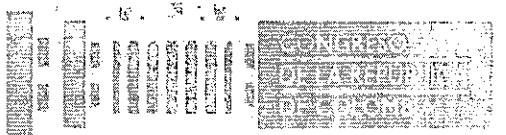 CONGRESO
DE LA REPUBLICA
DE COLOMBIA